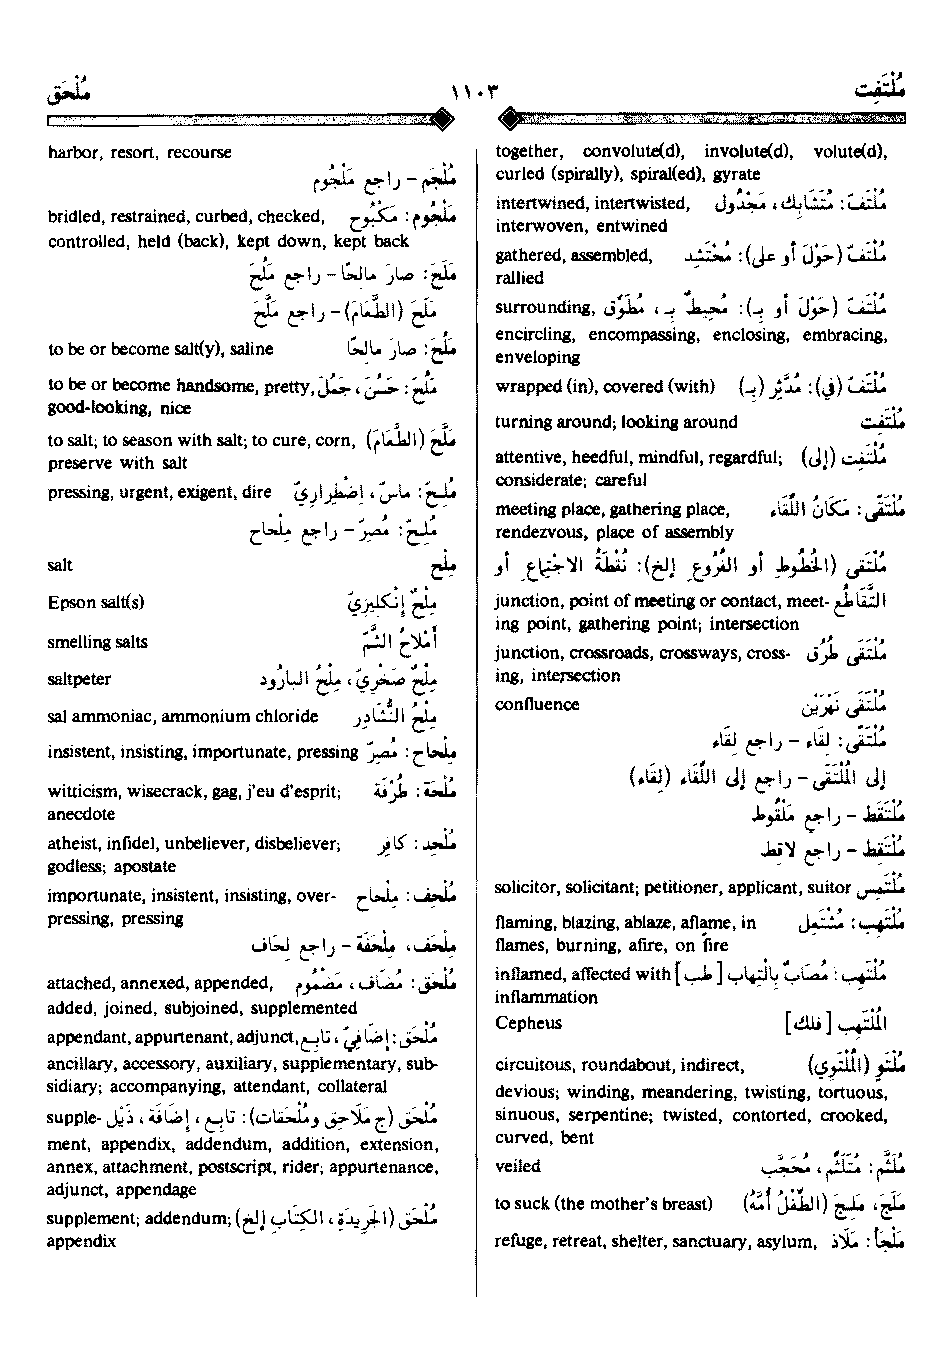 مُلْتَفِت ١١٠٣ مُلْحَق
together, convolute(d), involute(d), volute(d),
curled (spirally), spiral(ed), gyrate
مُلْتَفّ: مُتَشَابِك، مَجْدُول intertwined, intertwisted,
interwoven, entwined
مُلْتَفّ (حَوْلَ أو على): مُحْتَشِد gathered, assembled,
rallied
مُلْتَفّ (حَوْلَ أو بـ): مُحِيطٌ بـ، مُطَوِّق surrounding,
encircling, encompassing, enclosing, embracing,
enveloping
مُلْتَفّ (في): مُدَّثِّر (بـ) wrapped (in), covered (with)
مُلْتَفِت turning around; looking around
مُلْتَفِت (إلى) attentive, heedful, mindful, regardful;
considerate; careful
مُلْتَقًى: مَكَانُ اللِّقَاء meeting place, gathering place,
rendezvous, place of assembly
مُلْتَقَى (الخُطُوطِ أو الفُرُوعِ إلخ): نُقْطَةُ الاجْتِماعِ أو
التَّقَاطُع junction, point of meeting or contact, meet-
ing point, gathering point; intersection
مُلْتَقَى طُرُق junction, crossroads, crossways, cross-
ing, intersection
مُلْتَقَى نَهْرَيْن confluence
مُلْتَقًى: لِقَاء – راجع لِقَاء
إلى المُلْتَقَى – راجع إلى اللِّقَاء (لِقَاء)
مُلْتَقَط – راجع مَلْقُوط
مُلْتَقِط – راجع لاقِط
مُلْتَمِس solicitor, solicitant; petitioner, applicant, suitor
مُلْتَهِب: مُشْتَعِل flaming, blazing, ablaze, aflame, in
flames, burning, afire, on fire
مُلْتَهِب: مُصَابٌ بِالْتِهاب [طب] inflamed, affected with
inflammation
المُلْتَهِب [فلك] Cepheus
مُلْتَوٍ (المُلْتَوِي) circuitous, roundabout, indirect,
devious; winding, meandering, twisting, tortuous,
sinuous, serpentine; twisted, contorted, crooked,
curved, bent
مُلَثَّم: مُتَلَثِّم، مُحَجَّب veiled
مَلَجَ، مَلِجَ (الطِّفْلُ أُمَّهُ) to suck (the mother's breast)
مَلْجَأ: مَلَاذ refuge, retreat, shelter, sanctuary, asylum,
harbor, resort, recourse
مُلْجَم – راجع مَلْجُوم
مَلْجُوم: مَكْبُوح bridled, restrained, curbed, checked,
controlled, held (back), kept down, kept back
مَلَحَ: صارَ مالِحًا – راجع مَلُحَ
مَلَحَ (الطَّعَامَ) – راجع مَلَّحَ
مَلُحَ: صارَ مالِحًا to be or become salt(y), saline
مَلُحَ: حَسُنَ، جَمُلَ to be or become handsome, pretty,
good-looking, nice
مَلَّحَ (الطَّعَامَ) to salt; to season with salt; to cure, corn,
preserve with salt
مُلِحّ: ماسّ، اِضْطِرارِيّ pressing, urgent, exigent, dire
مُلِحّ: مُصِرّ – راجع مِلْحاح
مِلْح salt
مِلْحٌ إنْكِلِيزِيّ Epson salt(s)
أمْلَاحُ الشَّمّ smelling salts
مِلْحٌ صَخْرِيّ، مِلْحُ البارُود saltpeter
مِلْحُ النُّشَادِر sal ammoniac, ammonium chloride
مِلْحاح: مُصِرّ insistent, insisting, importunate, pressing
مُلْحَة: طُرْفَة witticism, wisecrack, gag, j'eu d'esprit;
anecdote
مُلْحِد: كافِر atheist, infidel, unbeliever, disbeliever;
godless; apostate
مُلْحِف: مِلْحاح importunate, insistent, insisting, over-
pressing, pressing
مِلْحَف، مِلْحَفَة – راجع لِحَاف
مُلْحَق: مُضَاف، مَضْمُوم attached, annexed, appended,
added, joined, subjoined, supplemented
مُلْحَق: إضَافِيّ، تابِع appendant, appurtenant, adjunct,
ancillary, accessory, auxiliary, supplementary, sub-
sidiary; accompanying, attendant, collateral
مُلْحَق (ج مَلَاحِق ومُلْحَقَات): تابِع، إضَافَة، ذَيْل supple-
ment, appendix, addendum, addition, extension,
annex, attachment, postscript, rider; appurtenance,
adjunct, appendage
مُلْحَق (الجَرِيدَةِ، الكِتَابِ إلخ) supplement; addendum;
appendix